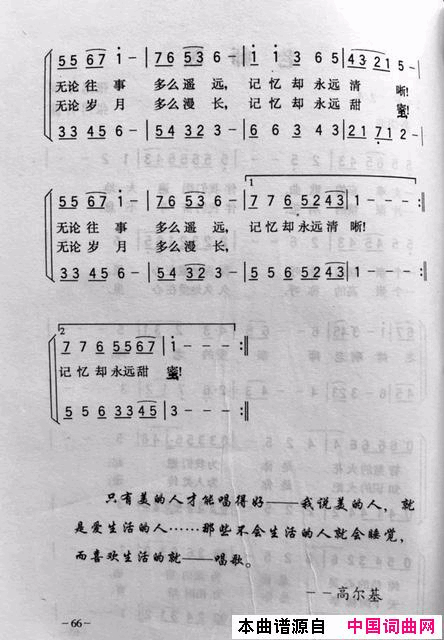 5 5 6 7 i - | 7 6 5 3 6 - | i i i 3 6 5 | 4 3 2 1 5 - |
无论往事 多么遥远, 记忆却永远清晰!
无论岁月 多么漫长, 记忆却永远甜蜜!
3 3 4 5 6 - | 5 4 3 2 3 - | 6 6 3 3 | 2 1 7 1 2 - |
5 5 6 7 i - | 7 6 5 3 6 - | 7 7 6 5 2 4 3 | 1 - - - :||
无论往事 多么遥远, 记忆却永远清晰!
无论岁月 多么漫长,
3 3 4 5 6 - | 5 4 3 2 3 - | 5 5 6 5 2 4 3 | 1 - - - :||
2
7 7 6 5 5 6 7 | i - - - :||
记忆却永远甜蜜!
5 5 6 3 3 4 5 | 3 - - - :||
只有美的人才能唱得好——我说美的人,就
是爱生活的人……那些不会生活的人就会睡觉,
而喜欢生活的就——唱歌。
--高尔基
-66-
本曲谱源自 中国词曲网